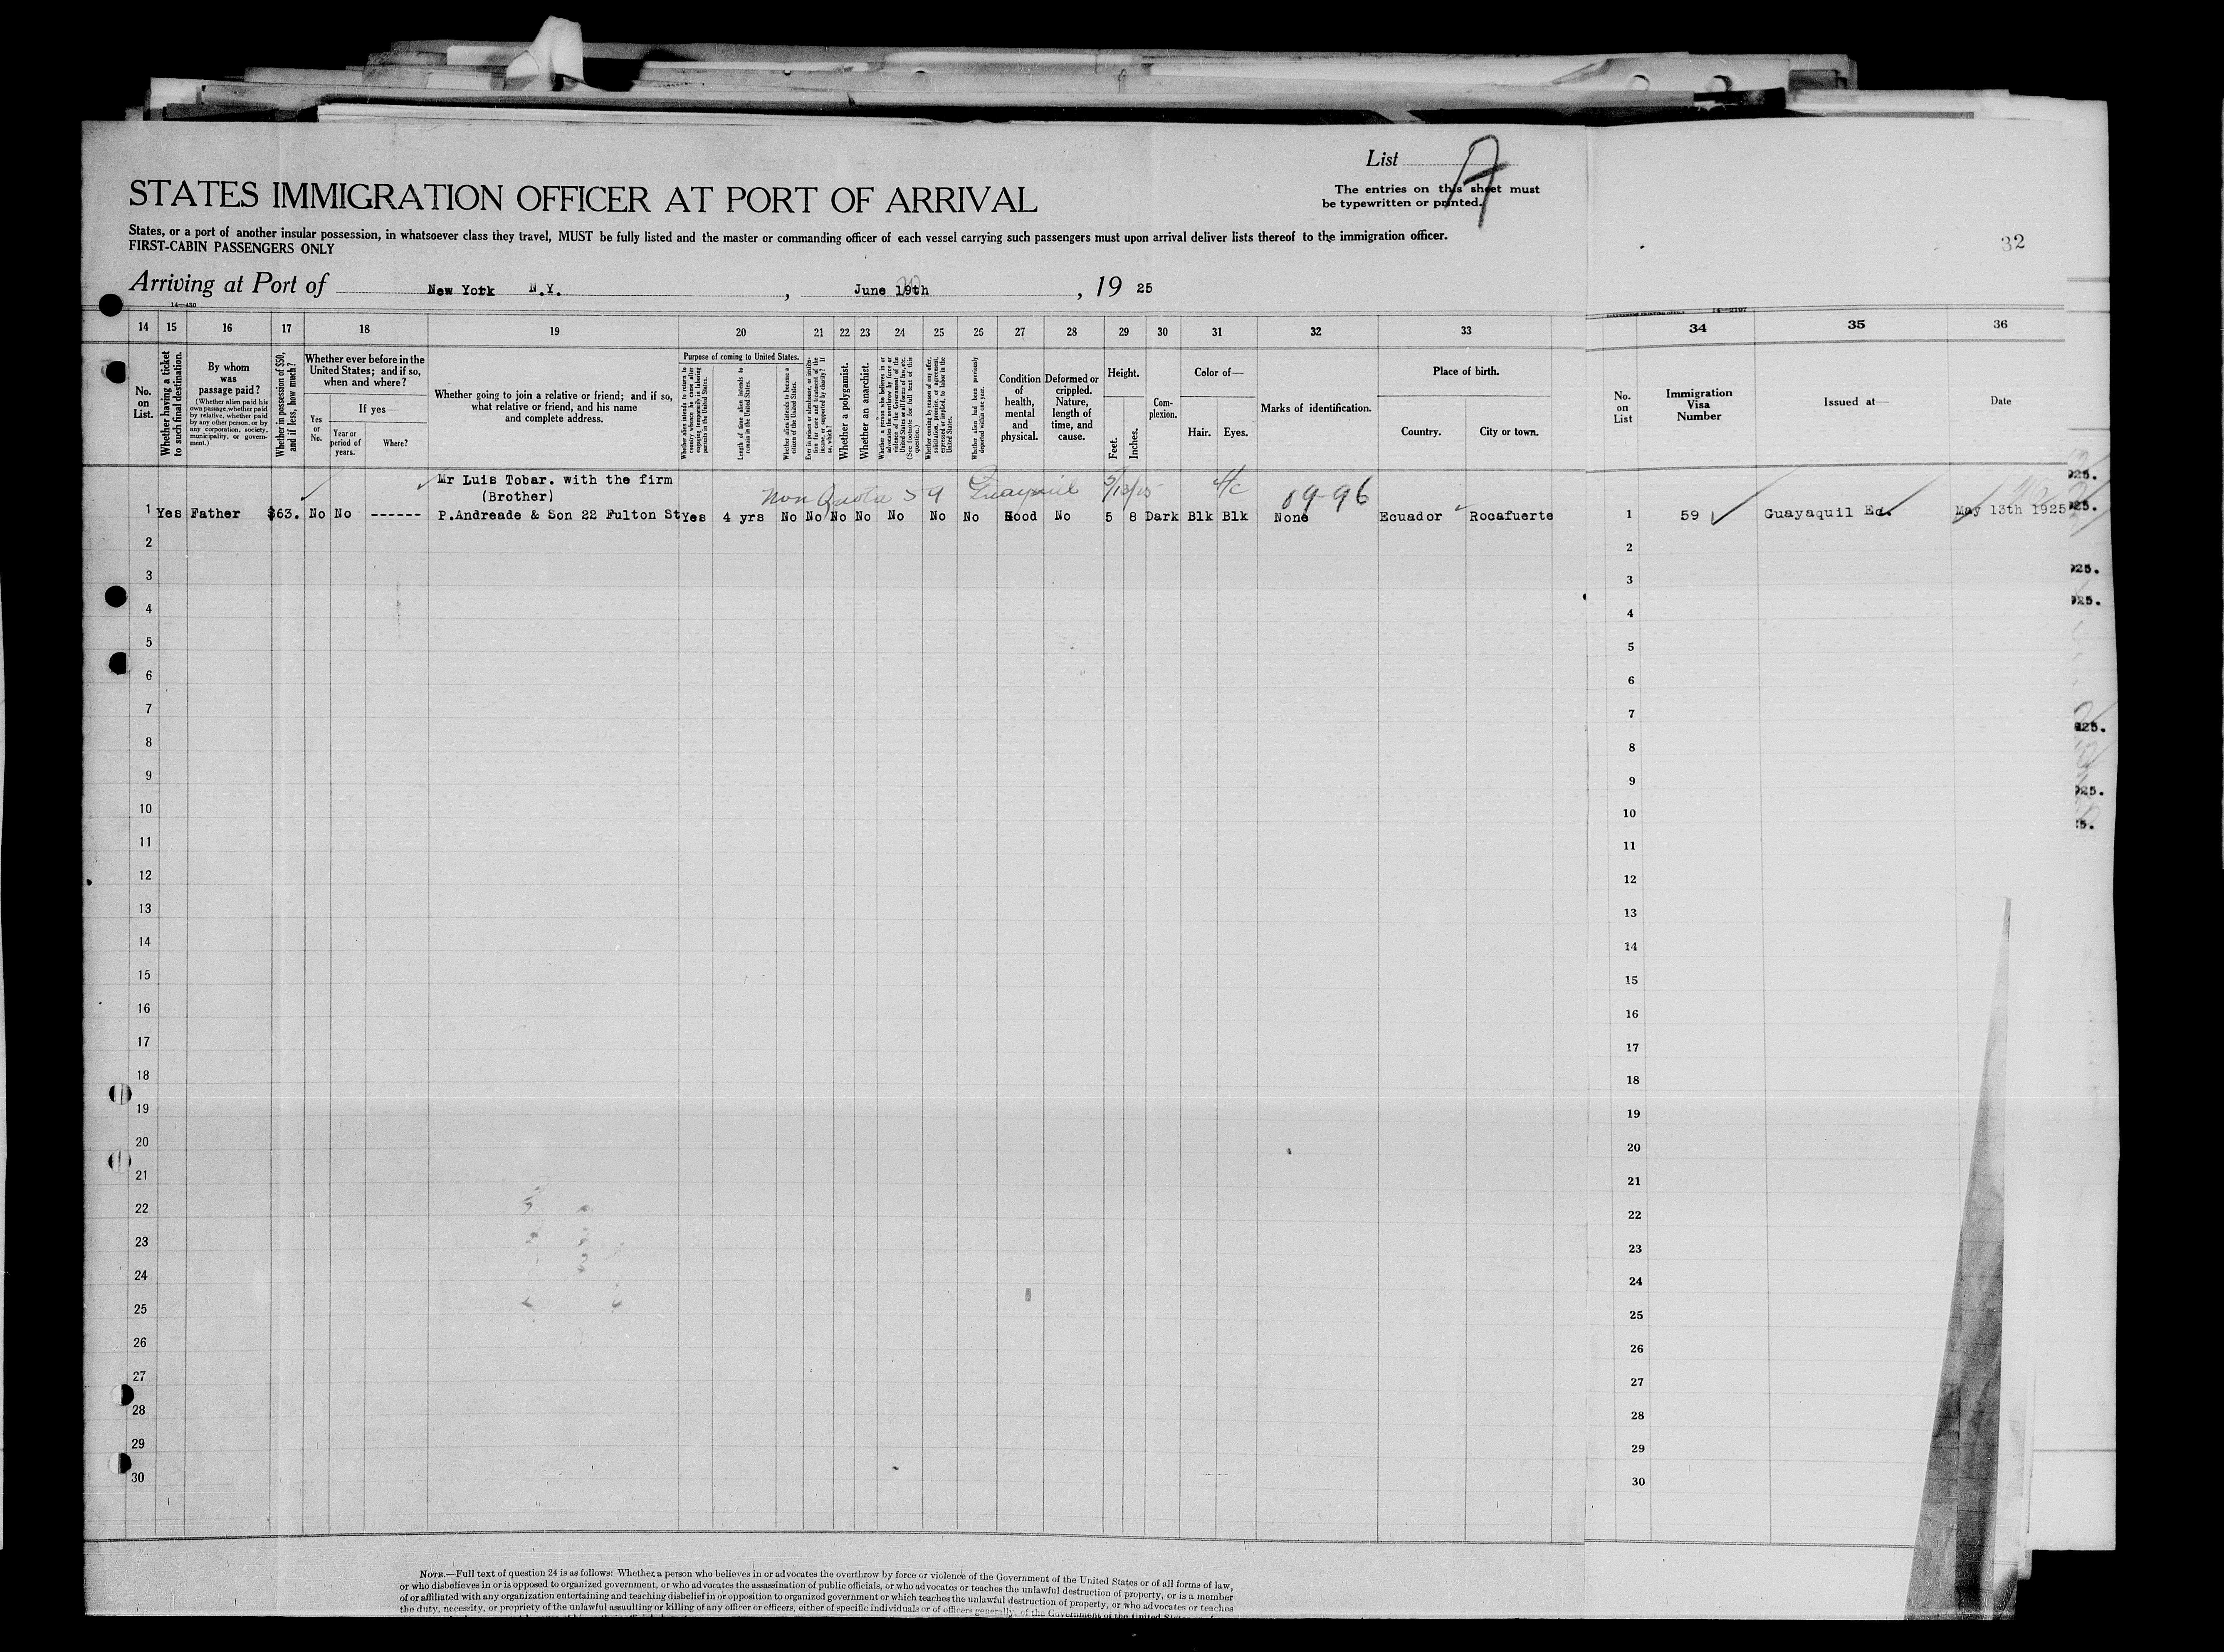 List A
The entries on this sheet must
be typewritten or printed.
STATES IMMIGRATION OFFICER AT PORT OF ARRIVAL
States, or a port of another insular possession, in whatsoever class they travel, MUST be fully listed and the master or commanding officer of each vessel carrying such passengers must upon arrival deliver lists thereof to the immigration officer.
FIRST-CABIN PASSENGERS ONLY
32
Arriving at Port of New York N.Y., June 19th, 19 25
14 15 16 17 18 19 20 21 22 23 24 25 26 27 28 29 30 31 32 33 34 35 36
No. on List.
Whether having a ticket to such final destination.
By whom was passage paid?
(Whether alien paid his own passage, whether paid by relative, whether paid by any other person, or by any corporation, society, municipality, or government.)
Whether in possession of $50, and if less, how much?
Whether ever before in the United States; and if so, when and where?
Yes or No.
If yes—
Year or period of years.
Where?
Whether going to join a relative or friend; and if so, what relative or friend, and his name and complete address.
Purpose of coming to United States.
Whether alien intends to return to country whence he came after engaging temporarily in laboring pursuits in the United States.
Length of time alien intends to remain in the United States.
Whether alien intends to become a citizen of the United States.
Ever in prison or almshouse, or institution for care and treatment of the insane, or supported by charity? If so, which?
Whether a polygamist.
Whether an anarchist.
Whether a person who believes in or advocates the overthrow by force or violence of the Government of the United States or all forms of law, etc. (See footnote for full text of this question.)
Whether coming by reason of any offer, solicitation, promise, or agreement, expressed or implied, to labor in the United States.
Whether alien had been previously deported within one year.
Condition of health, mental and physical.
Deformed or crippled. Nature, length of time, and cause.
Height.
Feet.
Inches.
Complexion.
Color of—
Hair.
Eyes.
Marks of identification.
Place of birth.
Country.
City or town.
No. on List
Immigration Visa Number
Issued at—
Date
Mr Luis Tobar. with the firm
(Brother)
Non Quota 59 Guayaquil 5/13/25
89-96
1 Yes Father $63. No No ------ P.Andreade & Son 22 Fulton St Yes 4 yrs No No No No No No No Good No 5 8 Dark Blk Blk None Ecuador Rocafuerte 1 59 Guayaquil Ec. May 13th 1925
2 2
3 3
4 4
5 5
6 6
7 7
8 8
9 9
10 10
11 11
12 12
13 13
14 14
15 15
16 16
17 17
18 18
19 19
20 20
21 21
22 22
23 23
24 24
25 25
26 26
27 27
28 28
29 29
30 30
NOTE.—Full text of question 24 is as follows: Whether a person who believes in or advocates the overthrow by force or violence of the Government of the United States or of all forms of law,
or who disbelieves in or is opposed to organized government, or who advocates the assassination of public officials, or who advocates or teaches the unlawful destruction of property, or is a member
of or affiliated with any organization entertaining and teaching disbelief in or opposition to organized government or which teaches the unlawful destruction of property, or who advocates or teaches
the duty, necessity, or propriety of the unlawful assaulting or killing of any officer or officers, either of specific individuals or of officers generally, of the Government of the United States